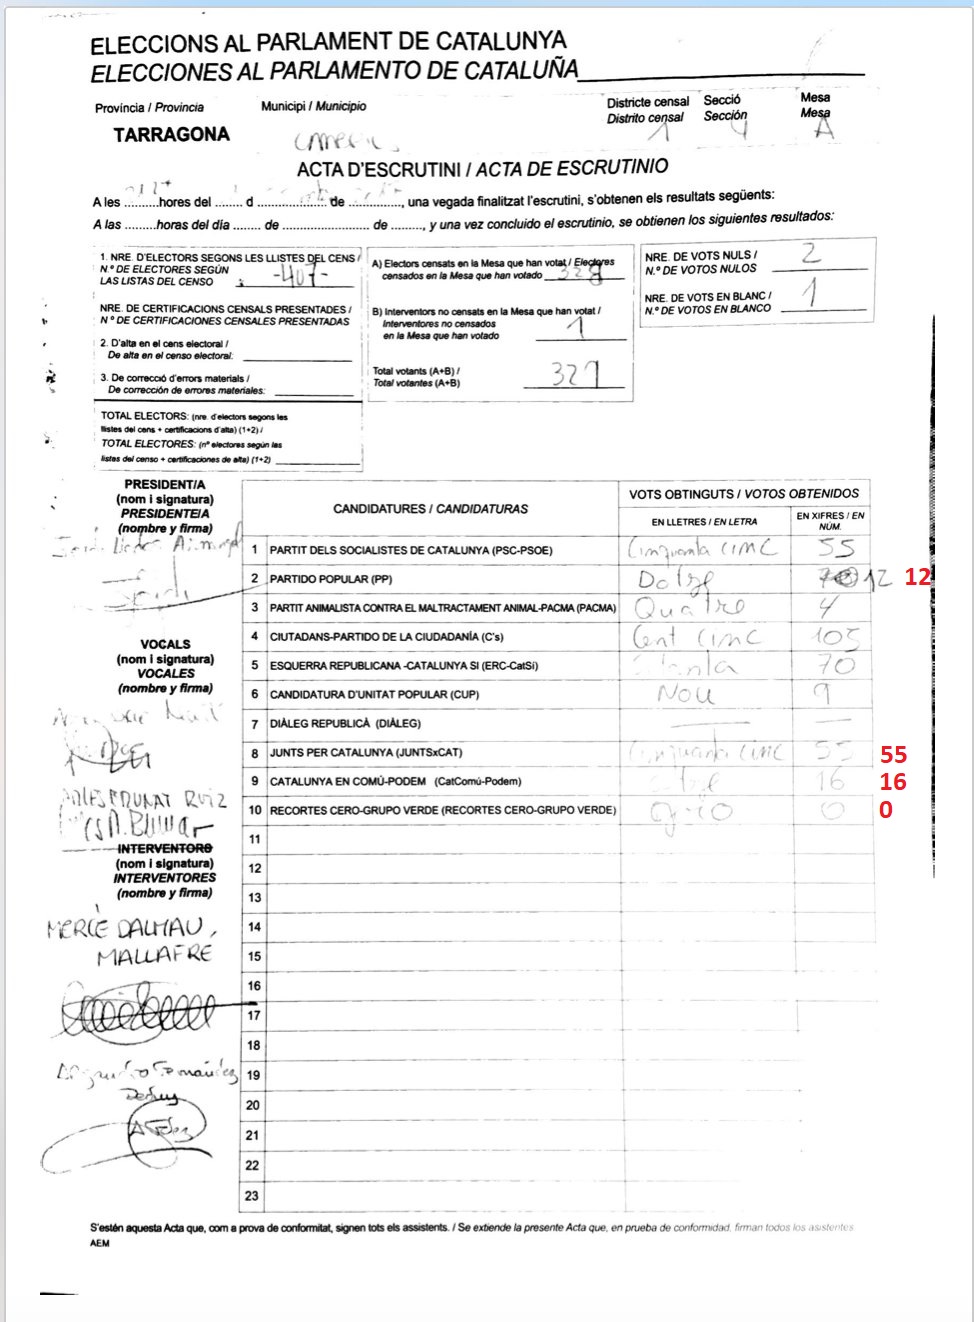 ELECCIONS AL PARLAMENT DE CATALUNYA
ELECCIONES AL PARLAMENTO DE CATALUÑA
Provincia / Provincia
Municipi / Municipio
Districte censal
Distrito censal
Secció
Sección
Mesa
Mesa
TARRAGONA
1
4
A
ACTA D'ESCRUTINI / ACTA DE ESCRUTINIO
A les ..........hores del ........ d .................... de ............, una vegada finalitzat l'escrutini, s'obtenen els resultats següents:
A las .........horas del día ........ de ........................ de ........, y una vez concluido el escrutinio, se obtienen los siguientes resultados:
1. NRE. D'ELECTORS SEGONS LES LLISTES DEL CENS /
N.º DE ELECTORES SEGÚN
LAS LISTAS DEL CENSO : -407-
NRE. DE CERTIFICACIONS CENSALS PRESENTADES /
N º DE CERTIFICACIONES CENSALES PRESENTADAS
2. D'alta en el cens electoral /
De alta en el censo electoral:
3. De correcció d'errors materials /
De corrección de errores materiales:
TOTAL ELECTORS: (nre. d'electors segons les
llistes del cens + certificacions d'alta) (1+2) /
TOTAL ELECTORES: (nº electores según las
listas del censo + certificaciones de alta) (1+2)
A) Electors censats en la Mesa que han votat / Electores
censados en la Mesa que han votado 328
B) Interventors no censats en la Mesa que han votat /
Interventores no censados
en la Mesa que han votado 1
Total votants (A+B) /
Total votantes (A+B) 329
NRE. DE VOTS NULS /
N.º DE VOTOS NULOS 2
NRE. DE VOTS EN BLANC /
N.º DE VOTOS EN BLANCO 1
PRESIDENT/A
(nom i signatura)
PRESIDENTE/A
(nombre y firma)
VOCALS
(nom i signatura)
VOCALES
(nombre y firma)
INTERVENTORS
(nom i signatura)
INTERVENTORES
(nombre y firma)
MERCE DALMAU,
MALLAFRE
Fernández
CANDIDATURES / CANDIDATURAS
VOTS OBTINGUTS / VOTOS OBTENIDOS
EN LLETRES / EN LETRA
EN XIFRES / EN
NÚM.
1 PARTIT DELS SOCIALISTES DE CATALUNYA (PSC-PSOE) Cinquanta cinc 55
2 PARTIDO POPULAR (PP) Dotze 12 12
3 PARTIT ANIMALISTA CONTRA EL MALTRACTAMENT ANIMAL-PACMA (PACMA) Quatre 4
4 CIUTADANS-PARTIDO DE LA CIUDADANÍA (C's) Cent cinc 105
5 ESQUERRA REPUBLICANA -CATALUNYA SI (ERC-CatSí) 70
6 CANDIDATURA D'UNITAT POPULAR (CUP) Nou 9
7 DIÀLEG REPUBLICÀ (DIÀLEG) — —
8 JUNTS PER CATALUNYA (JUNTSxCAT) Cinquanta cinc 55 55
9 CATALUNYA EN COMÚ-PODEM (CatComú-Podem) 16 16
10 RECORTES CERO-GRUPO VERDE (RECORTES CERO-GRUPO VERDE) 0 0
11
12
13
14
15
16
17
18
19
20
21
22
23
S'estén aquesta Acta que, com a prova de conformitat, signen tots els assistents. / Se extiende la presente Acta que, en prueba de conformidad, firman todos los asistentes
AEM